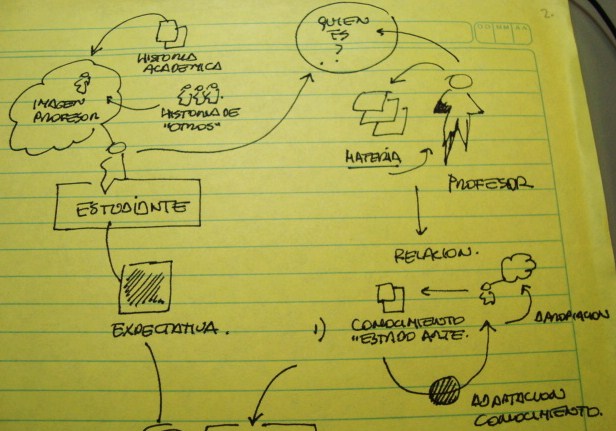 2.
QUIEN
ES
?
HISTORIA
ACADEMICA
IMAGEN
PROFESOR
HISTORIA DE
"OTROS"
MATERIA
PROFESOR
ESTUDIANTE
RELACION.
EXPECTATIVA.
1)
CONOCIMIENTO
"ESTADO ARTE.
APROPIACION
ADAPTACION
CONOCIMIENTO.